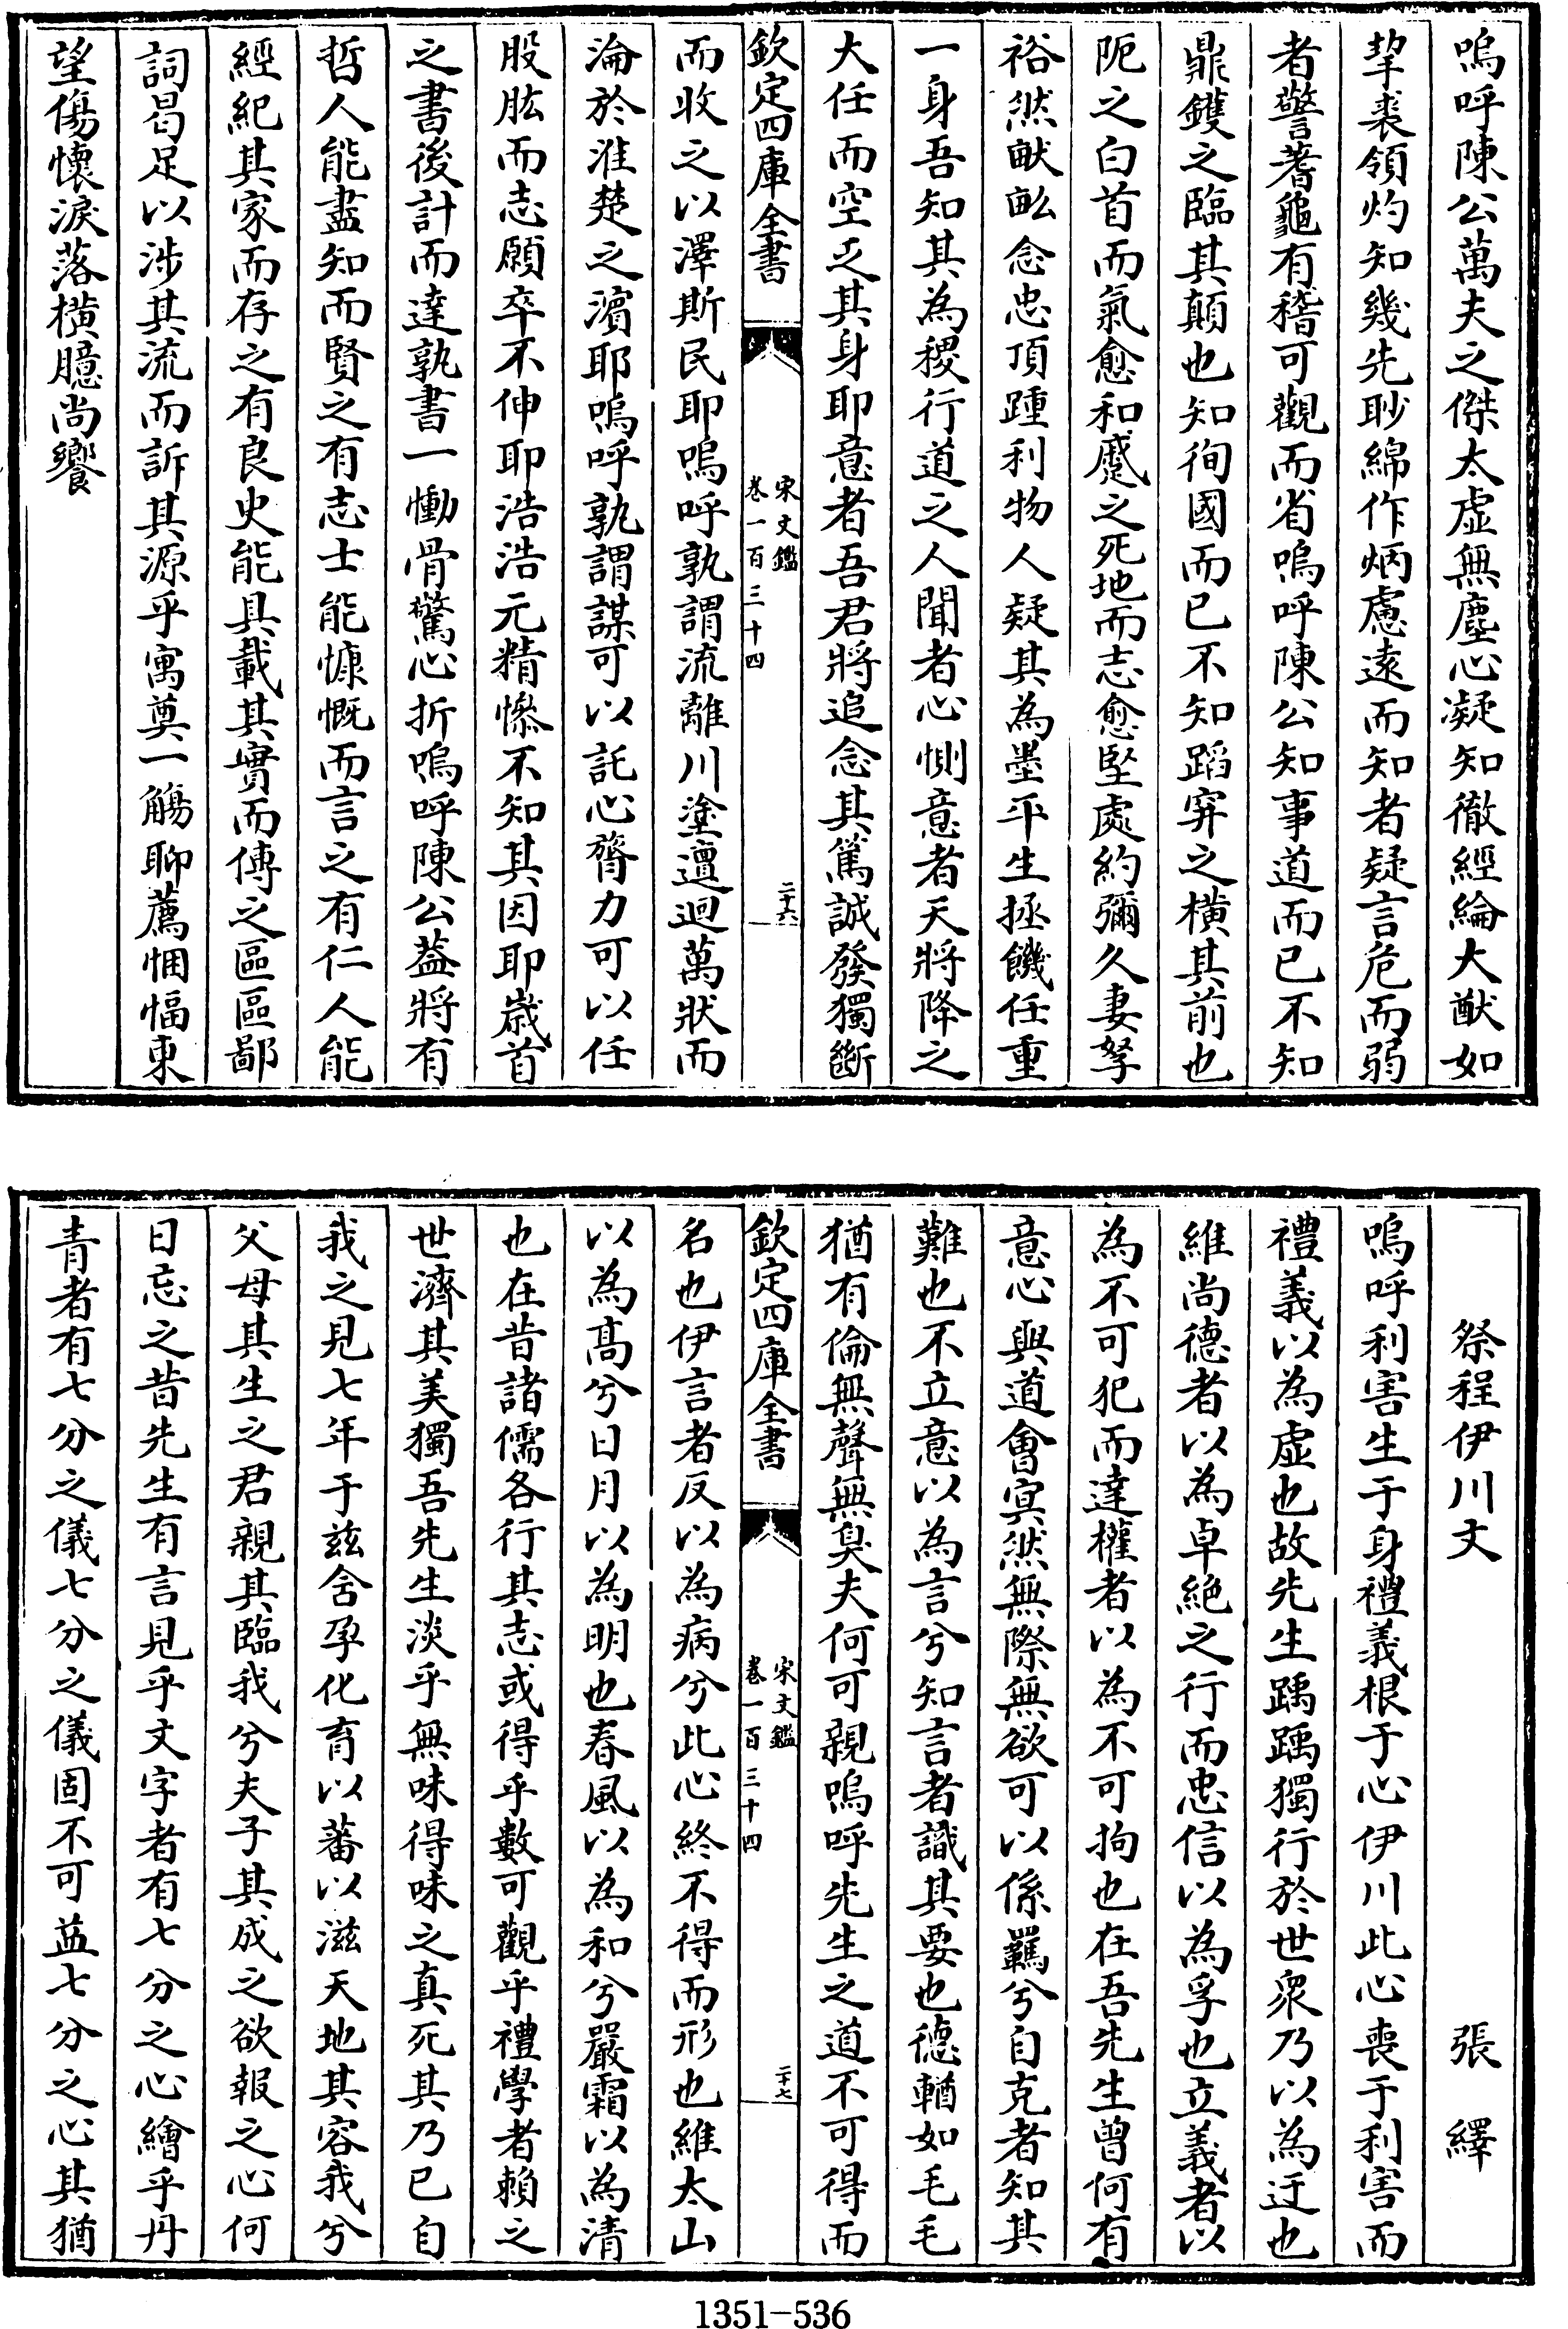 嗚呼陳公萬夫之傑太虛無塵心凝知徹經綸大猷如
挈裘領灼知幾先眇綿作炳慮遠而知者疑言危而弱
者警蓍龜有稽可觀而省嗚呼陳公知事道而已不知
鼎鑊之臨其顛也知徇國而已不知蹈穽之橫其前也
阨之白首而氣愈和蹙之死地而志愈堅處約彌久妻孥
裕然畎畝念忠頂踵利物人疑其為墨平生拯饑任重
一身吾知其為稷行道之人聞者心惻意者天將降之
大任而空乏其身耶意者吾君將追念其篤誠發獨斷
欽定四庫全書
宋文鑑
卷一百三十四
二十六
而收之以澤斯民耶嗚呼孰謂流離川塗邅迴萬狀而
淪於淮楚之濵耶嗚呼孰謂謀可以託心膂力可以任
股肱而志願卒不伸耶浩浩元精慘不知其因耶歲首
之書後計而達孰書一慟骨驚心折嗚呼陳公葢將有
哲人能盡知而賢之有志士能慷慨而言之有仁人能
經紀其家而存之有良史能具載其實而傳之區區鄙
詞曷足以涉其流而訴其源乎寓奠一觴聊薦悃愊東
望傷懷淚落橫臆尚饗
祭程伊川文 張繹
嗚呼利害生于身禮義根于心伊川此心喪于利害而
禮義以為虛也故先生踽踽獨行於世衆乃以為迂也
維尚德者以為卓絶之行而忠信以為孚也立義者以
為不可犯而達權者以為不可拘也在吾先生曾何有
意心與道會冥然無際無欲可以係羈兮自克者知其
難也不立意以為言兮知言者識其要也德輶如毛毛
猶有倫無聲無臭夫何可親嗚呼先生之道不可得而
欽定四庫全書
宋文鑑
卷一百三十四
二十七
名也伊言者反以為病兮此心終不得而形也維太山
以為髙兮日月以為明也春風以為和兮嚴霜以為清
也在昔諸儒各行其志或得乎數可觀乎禮學者賴之
世濟其美獨吾先生淡乎無味得味之真死其乃已自
我之見七年于兹含孕化育以蕃以滋天地其容我兮
父母其生之君親其臨我兮夫子其成之欲報之心何
日忘之昔先生有言見乎文字者有七分之心繪乎丹
青者有七分之儀七分之儀固不可益七分之心其猶
1351-536